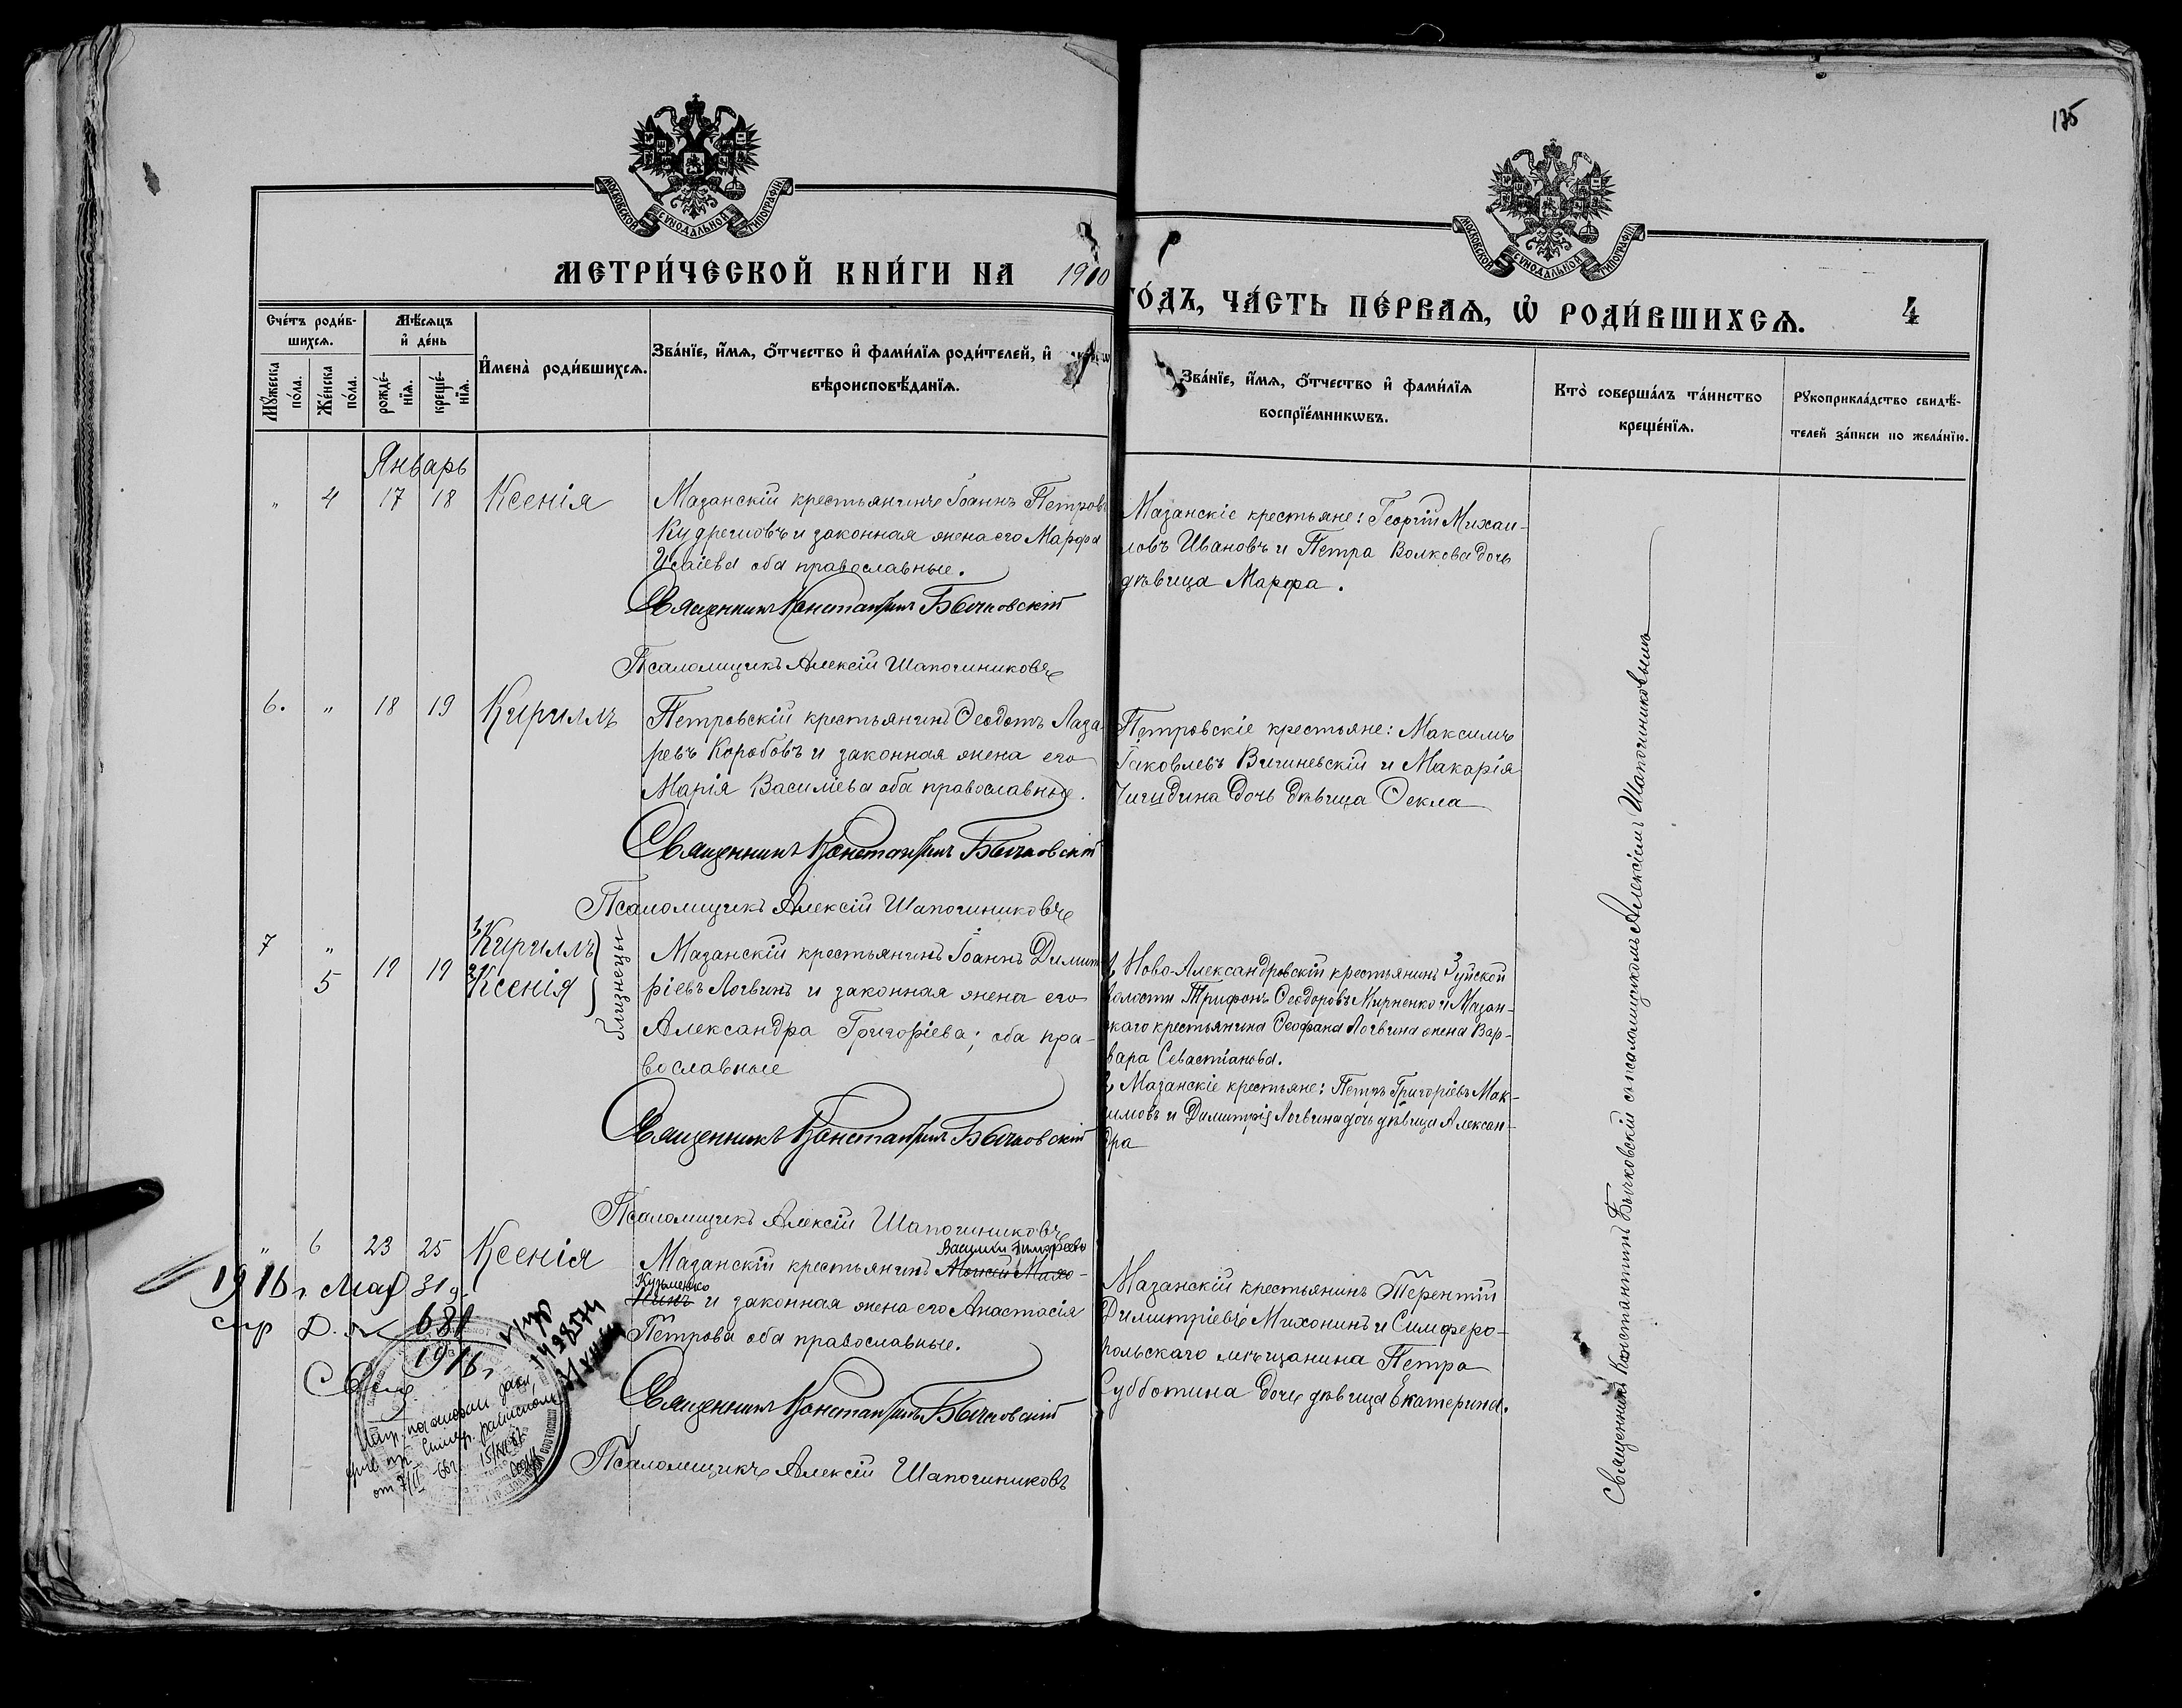 175
МОСКОВСКОЙ СѴНОДАЛЬНОЙ ТИПОГРАФІИ
МОСКОВСКОЙ СѴНОДАЛЬНОЙ ТИПОГРАФІИ
МЕТРИ́ЧЕСКОЙ КНИ́ГИ НА 1910
ГО́ДЪ, ЧА́СТЬ ПЕ́РВАѦ, Ѡ҆ РОДИ́ВШИХСѦ. 4
Сче́тъ роди́в-
шихсѧ.
Мꙋ́жеска по́ла.
Же́нска по́ла.
Мѣ́сѧцъ
и҆ де́нь
рожде́-
нїѧ.
креще́-
нїѧ.
И҆мена̀ роди́вшихсѧ.
Зва́нїе, и҆́мѧ, ѻ҆́тчество и҆ фами́лїѧ роди́телей, и҆
вѣроисповѣ́данїѧ.
Зва́нїе, и҆́мѧ, ѻ҆́тчество и҆ фами́лїѧ
воспрїе́мникѡвъ.
Кто̀ соверша́лъ та́инство
креще́нїѧ.
Рꙋкоприкла́дство свидѣ́-
телей за́писи по жела́нїю.
Январь
" 4 17 18 Ксенія
Мазанскій крестьянинъ Іоаннъ Петровъ
Кудрешовъ и законная жена его Марфа
Исаіева оба православные.
Священникъ Константинъ Бычковскій
Псаломщикъ Алексій Шапошниковъ
Мазанскіе крестьяне: Георгій Михаи-
ловъ Ивановъ и Петра Волкова дочь
дѣвица Марфа.
6. " 18 19 Кириллъ
Петровскій крестьянинъ Ѳеодотъ Лаза-
ревъ Коробовъ и законная жена его
Марія Василіева оба православные.
Священникъ Константинъ Бычковскій
Псаломщикъ Алексій Шапошниковъ
Петровскіе крестьяне: Максимъ
Іаковлевъ Вишневскій и Макарія
дочь дѣвица Ѳекла
7 " 1, Кириллъ
5 19 19 2, Ксенія
близнецы
Мазанскій крестьянинъ Іоаннъ Димит-
ріевъ Логвинъ и законная жена его
Александра Григоріева; оба пра-
вославные
Священникъ Константинъ Бычковскій
Псаломщикъ Алексій Шапошниковъ
1, Ново-Александровскій крестьянинъ Зуйской
волости Трифонъ Ѳеодоровъ и Мазан-
скаго крестьянина Ѳеофана Логвина жена Вар-
вара Севастіанова.
2, Мазанскіе крестьяне: Петръ Григоріевъ Мак-
симовъ и Димитрія Логвина дочь дѣвица Алексан-
дра
" 6 23 25 Ксенія
Василій Тимофеевъ
Мазанскій крестьянинъ Моисей Михо-
Кузьменко
нинъ и законная жена его Анастасія
Петрова оба православные.
Священникъ Константинъ Бычковскій
Псаломщикъ Алексій Шапошниковъ
Мазанскій крестьянинъ Терентій
Димитріевъ Михонинъ и Симферо-
польскаго мѣщанина Петра
Субботина дочь дѣвица Екатерина.
Священникъ Константинъ Бычковскій съ псаломщикомъ Алексіемъ Шапошниковымъ
1916 г. Мая 31 д.
680
1916 г.